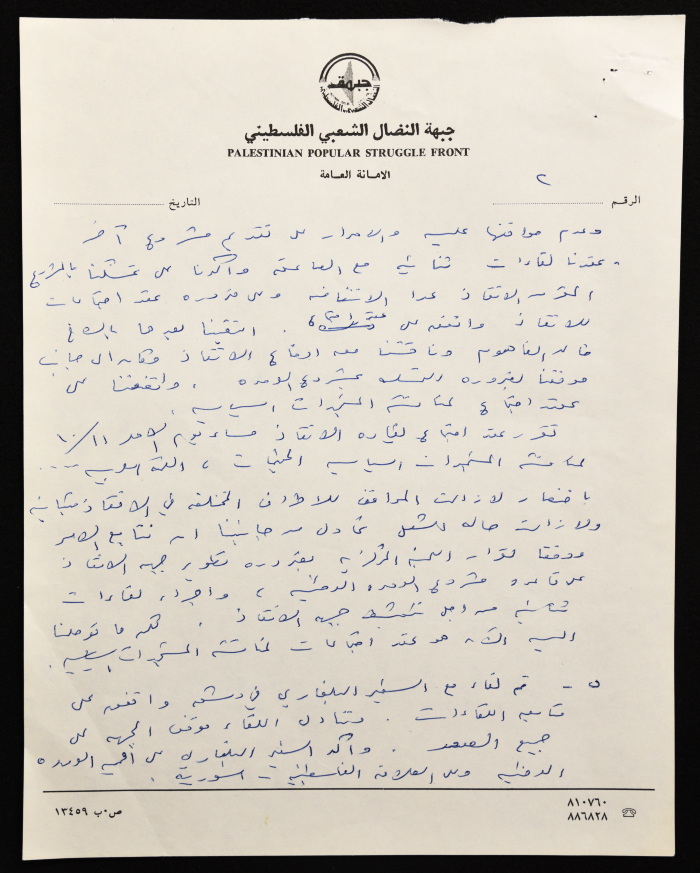 جبهة النضال الشعبي الفلسطيني
PALESTINIAN POPULAR STRUGGLE FRONT
الامانة العامة
الرقم ٢ التاريخ
وعدم موافقتها عليه والاصرار على تقديم مشروع آخر
- عقدنا لقاءات ثنائية مع الصاعقة وأكدنا على تمسكنا بالمشروع
المقر من الانقاذ عدا الانتفاضة وعلى ضرورة عقد اجتماعات
للانقاذ واتفق على . التقينا بعدها بالاخ
خالد الفاهوم وناقشنا معه اوضاع الانقاذ وكان الى جانب
موقفنا بضرورة التمسك بمشروع الوحدة ، واتفقنا على
عقد اجتماع لمناقشة المستجدات السياسية .
تقرر عقد اجتماع لقيادة الانقاذ مساء يوم الاحد ١١/١٠
لمناقشة المستجدات السياسية ، المخيمات ، اللجنة العربية ...
باختصار لازالت المواقف للاطراف المختلفة في الانقاذ متباينة
ولازالت حالة الشلل نحاول من جانبنا ان نتابع الامر
ووفقا لقرار اللجنة المركزية بضرورة تطوير جبهة الانقاذ
على قاعدة مشروع الوحدة الوطنية ، واجراء لقاءات
ثنائية من اجل تنشيط جبهة الانقاذ . لكن ما توصلنا
اليه الآن هو عقد اجتماعات لمناقشة المستجدات السياسية .
٥ - تم لقاء مع السفير البلغاري في دمشق واتفق على
متابعة اللقاءات . وتناول اللقاء موقف الجبهة على
جميع الصعد . وأكد السفير البلغاري على اهمية الوحدة
الوطنية وعلى العلاقة الفلسطينية - السورية .
ص.ب ١٣٤٥٩
٨١٠٧٦٠
٨٨٦٨٢٨